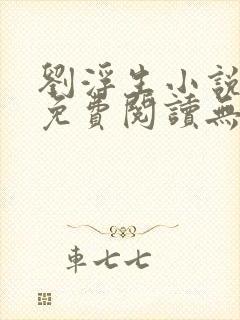 劉浮生小說
免費閱讀無
車七七